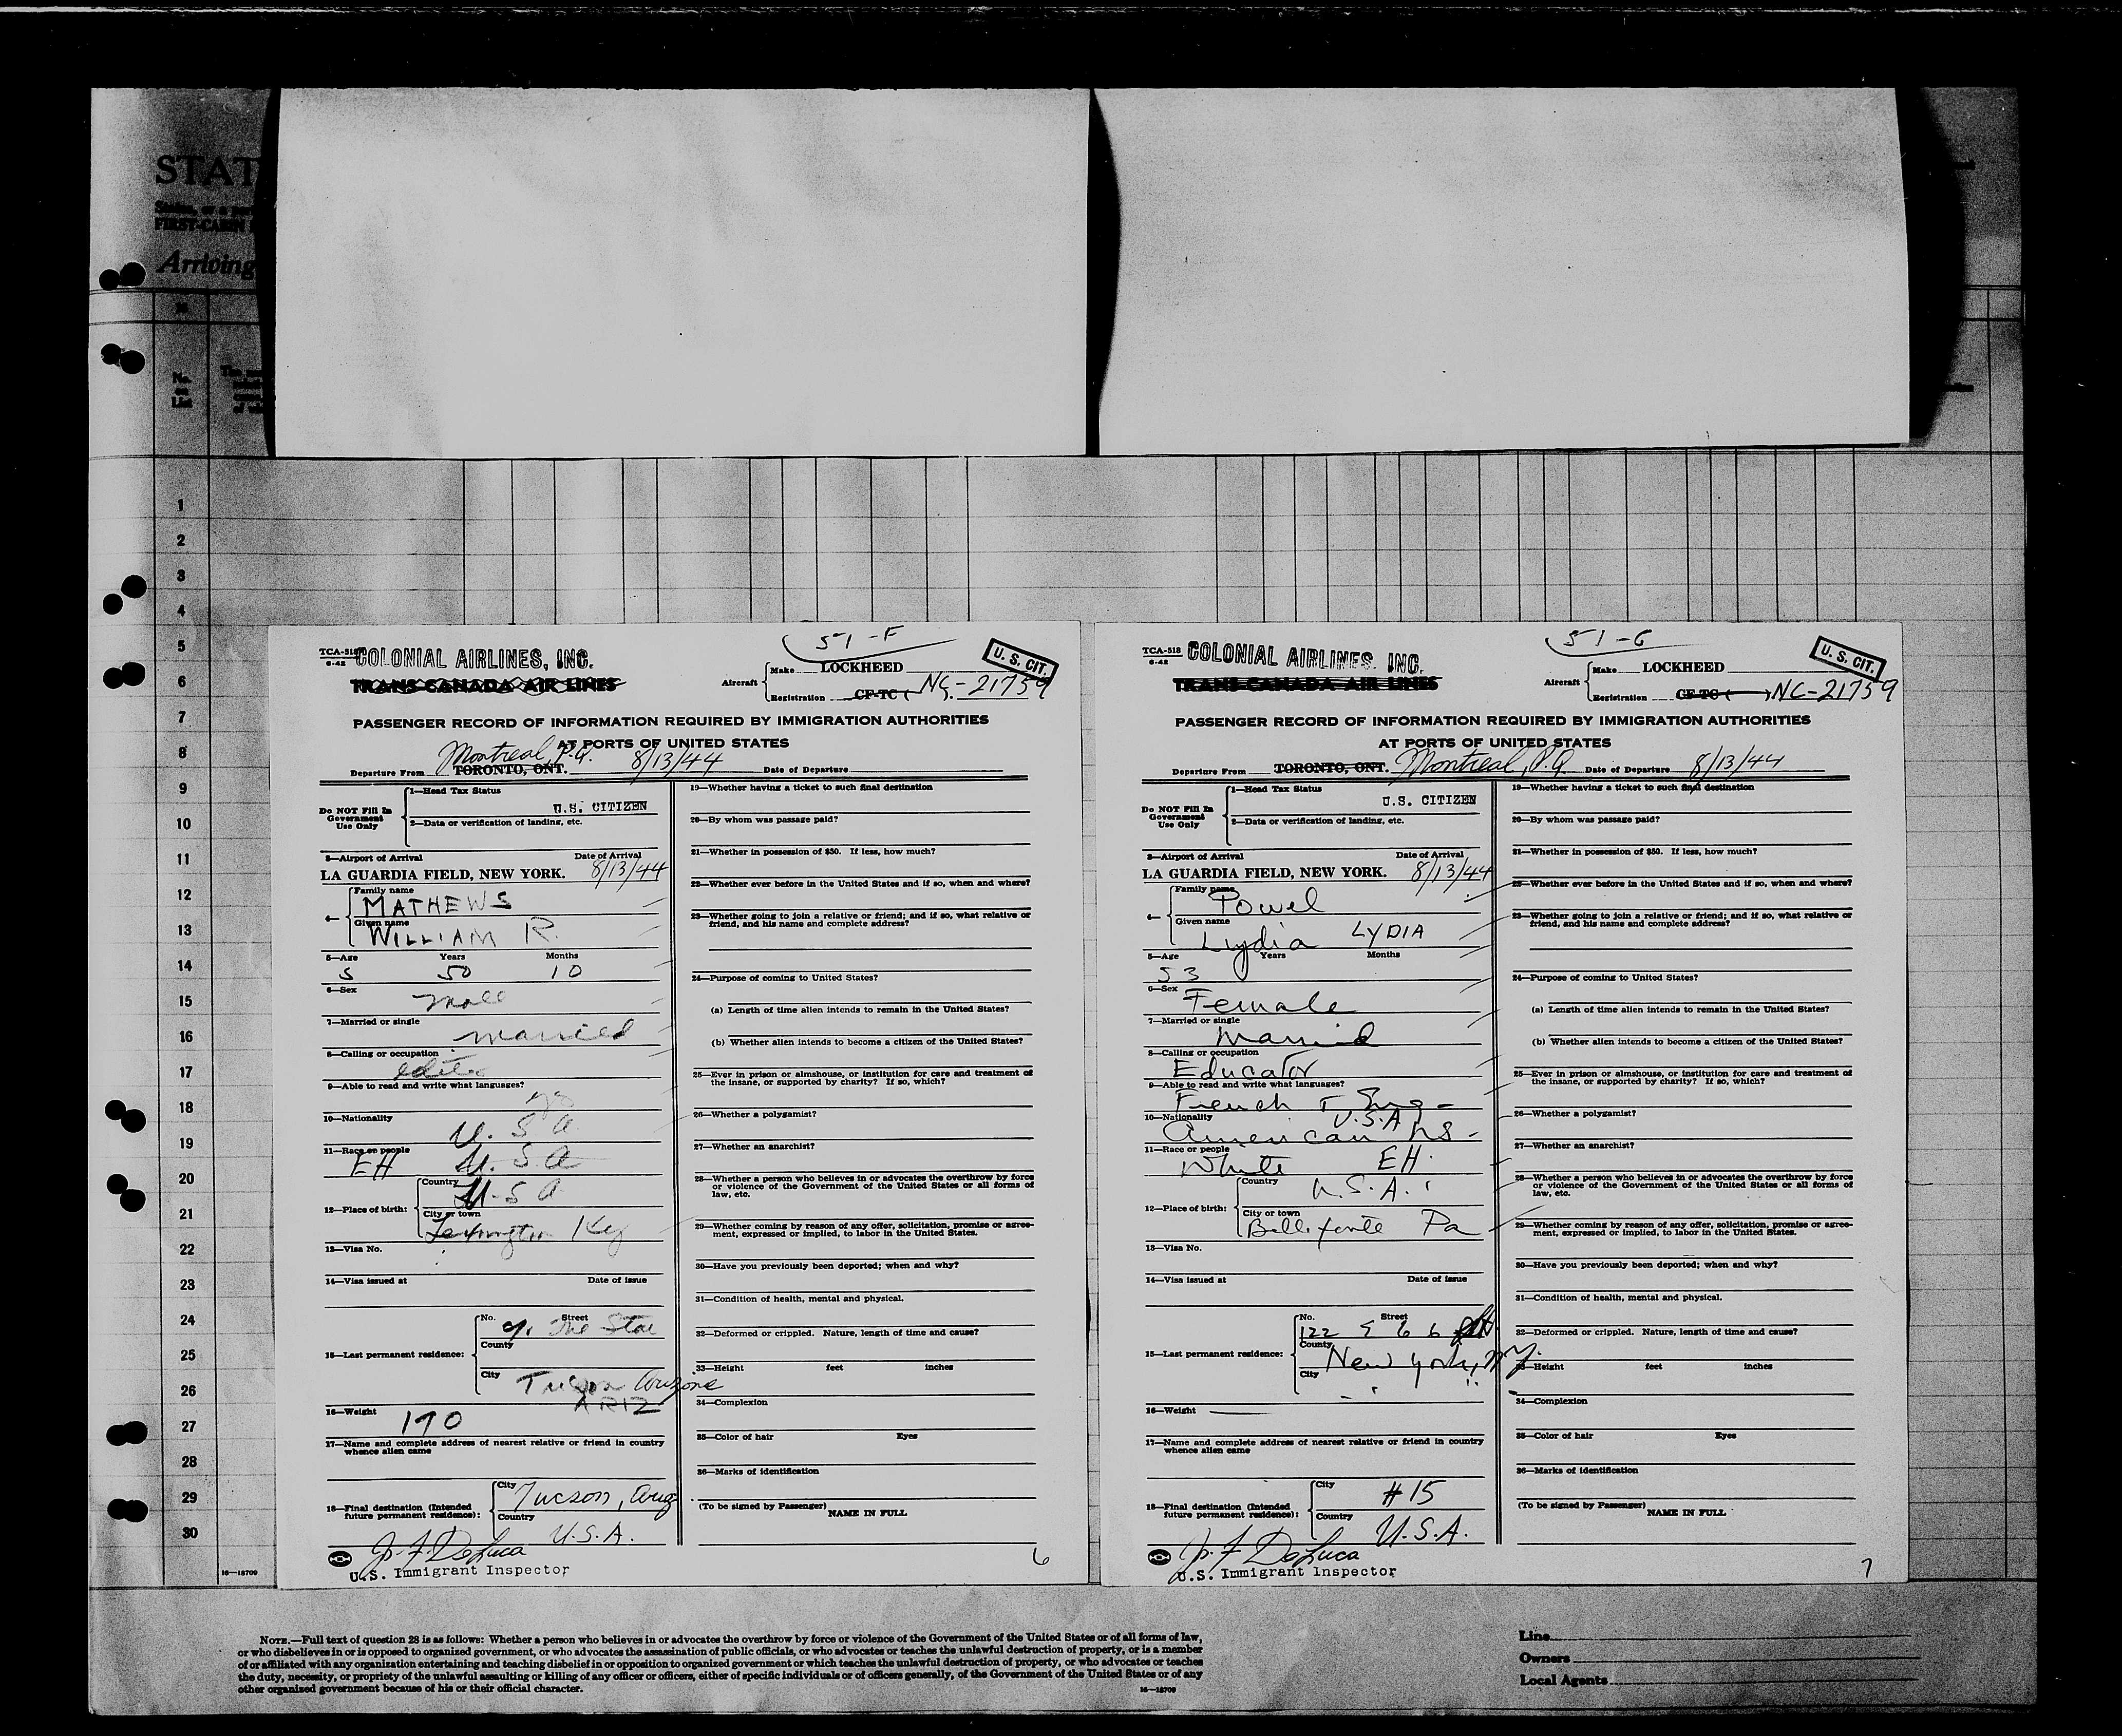 STAT
FIRST-CABIN
Arriving
No.
List
1
2
3
4
5
6
7
8
9
10
11
12
13
14
15
16
17
18
19
20
21
22
23
24
25
26
27
28
29
30
16—18709
51-F
TCA-518
6-42
COLONIAL AIRLINES, INC.
TRANS-CANADA AIR LINES
U. S. CIT.
Aircraft
Make LOCKHEED
Registration CF-TC ( NC-21759
PASSENGER RECORD OF INFORMATION REQUIRED BY IMMIGRATION AUTHORITIES
AT PORTS OF UNITED STATES
Montreal, P.Q. 8/13/44
Departure From TORONTO, ONT. Date of Departure
Do NOT Fill In
Government
Use Only
1—Head Tax Status
U.S. CITIZEN
2—Data or verification of landing, etc.
3—Airport of Arrival Date of Arrival
LA GUARDIA FIELD, NEW YORK. 8/13/44
4—
Family name
MATHEWS
Given name
WILLIAM R.
5—Age Years Months
5 50 10
6—Sex
male
7—Married or single
married
8—Calling or occupation
editor
9—Able to read and write what languages?
10—Nationality
U. S a.
11—Race or people
EH U. S. a
12—Place of birth:
Country
U-S a.
City or town
Lexington Key
13—Visa No.
14—Visa issued at Date of issue
15—Last permanent residence:
No. Street
c/o The Star
County
City
Tucson
ARIZ
16—Weight
170
17—Name and complete address of nearest relative or friend in country
whence alien came
18—Final destination (Intended
future permanent residence):
City
Tucson,
Country
U.S.A.
J. F. DeLuca
U.S. Immigrant Inspector
19—Whether having a ticket to such final destination
20—By whom was passage paid?
21—Whether in possession of $50. If less, how much?
22—Whether ever before in the United States and if so, when and where?
23—Whether going to join a relative or friend; and if so, what relative or
friend, and his name and complete address?
24—Purpose of coming to United States?
(a) Length of time alien intends to remain in the United States?
(b) Whether alien intends to become a citizen of the United States?
25—Ever in prison or almshouse, or institution for care and treatment of
the insane, or supported by charity? If so, which?
26—Whether a polygamist?
27—Whether an anarchist?
28—Whether a person who believes in or advocates the overthrow by force
or violence of the Government of the United States or all forms of
law, etc.
29—Whether coming by reason of any offer, solicitation, promise or agree-
ment, expressed or implied, to labor in the United States.
30—Have you previously been deported; when and why?
31—Condition of health, mental and physical.
32—Deformed or crippled. Nature, length of time and cause?
33—Height feet inches
34—Complexion
35—Color of hair Eyes
36—Marks of identification
(To be signed by Passenger)
NAME IN FULL
6
51-G
TCA-518
6-42
COLONIAL AIRLINES, INC.
TRANS-CANADA AIR LINES
U. S. CIT.
Aircraft
Make LOCKHEED
Registration CF-TC ( ) NC-21759
PASSENGER RECORD OF INFORMATION REQUIRED BY IMMIGRATION AUTHORITIES
AT PORTS OF UNITED STATES
Departure From TORONTO, ONT. Montreal, P.Q. Date of Departure 8/13/44
Do NOT Fill In
Government
Use Only
1—Head Tax Status
U.S. CITIZEN
2—Data or verification of landing, etc.
3—Airport of Arrival Date of Arrival
LA GUARDIA FIELD, NEW YORK. 8/13/44
4—
Family name
Powel
Given name
Lydia LYDIA
5—Age Years Months
53
6—Sex
Female
7—Married or single
Married
8—Calling or occupation
Educator
9—Able to read and write what languages?
French + Eng-
10—Nationality U.S.A
American
11—Race or people
White EH.
12—Place of birth:
Country
U.S.A.
City or town
Bellefonte Pa
13—Visa No.
14—Visa issued at Date of issue
15—Last permanent residence:
No. Street
122 E 66 St.
County
New York, N.Y.
City
16—Weight
17—Name and complete address of nearest relative or friend in country
whence alien came
18—Final destination (Intended
future permanent residence):
City
#15
Country
U.S.A.
J. F. DeLuca
U.S. Immigrant Inspector
19—Whether having a ticket to such final destination
20—By whom was passage paid?
21—Whether in possession of $50. If less, how much?
22—Whether ever before in the United States and if so, when and where?
23—Whether going to join a relative or friend; and if so, what relative or
friend, and his name and complete address?
24—Purpose of coming to United States?
(a) Length of time alien intends to remain in the United States?
(b) Whether alien intends to become a citizen of the United States?
25—Ever in prison or almshouse, or institution for care and treatment of
the insane, or supported by charity? If so, which?
26—Whether a polygamist?
27—Whether an anarchist?
28—Whether a person who believes in or advocates the overthrow by force
or violence of the Government of the United States or all forms of
law, etc.
29—Whether coming by reason of any offer, solicitation, promise or agree-
ment, expressed or implied, to labor in the United States.
30—Have you previously been deported; when and why?
31—Condition of health, mental and physical.
32—Deformed or crippled. Nature, length of time and cause?
33—Height feet inches
34—Complexion
35—Color of hair Eyes
36—Marks of identification
(To be signed by Passenger)
NAME IN FULL
7
NOTE.—Full text of question 28 is as follows: Whether a person who believes in or advocates the overthrow by force or violence of the Government of the United States or of all forms of law,
or who disbelieves in or is opposed to organized government, or who advocates the assassination of public officials, or who advocates or teaches the unlawful destruction of property, or is a member
of or affiliated with any organization entertaining and teaching disbelief in or opposition to organized government or which teaches the unlawful destruction of property, or who advocates or teaches
the duty, necessity, or propriety of the unlawful assaulting or killing of any officer or officers, either of specific individuals or of officers generally, of the Government of the United States or of any
other organized government because of his or their official character.
16—18709
Line
Owners
Local Agents